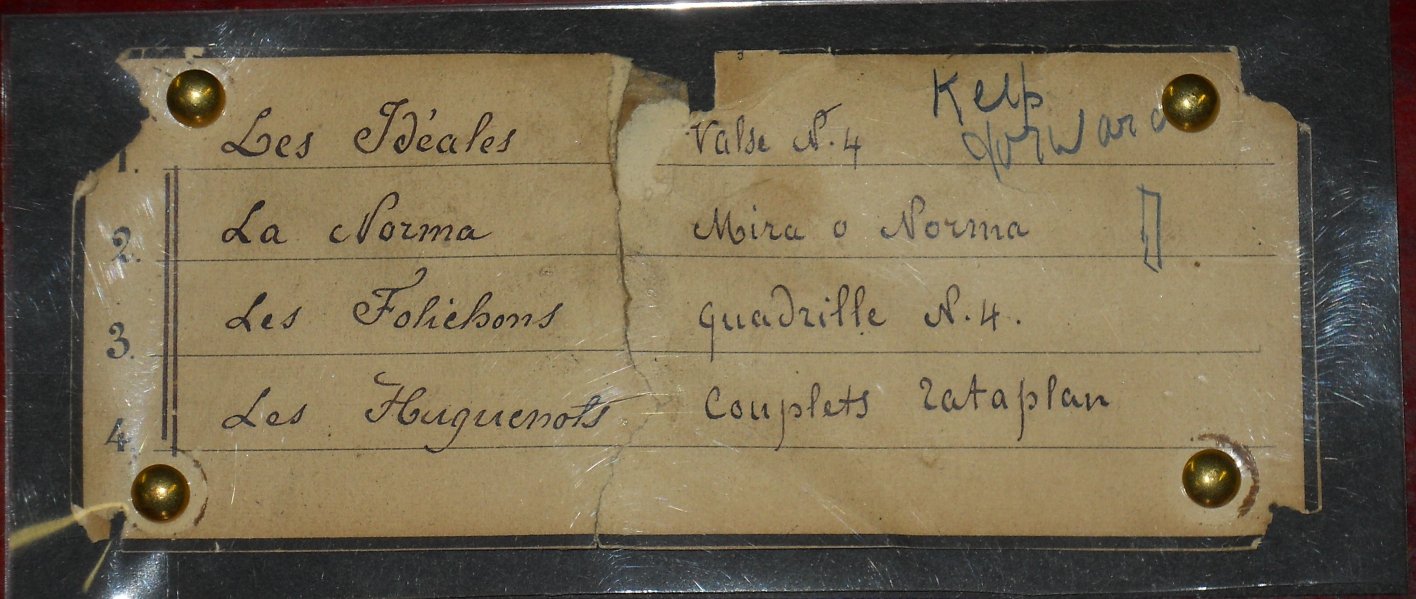 Kelp
forward
1. Les Idéales Valse N. 4
2. La Norma Mira o Norma
3. Les Folichons quadrille N. 4.
4. Les Huguenots Couplets rataplan